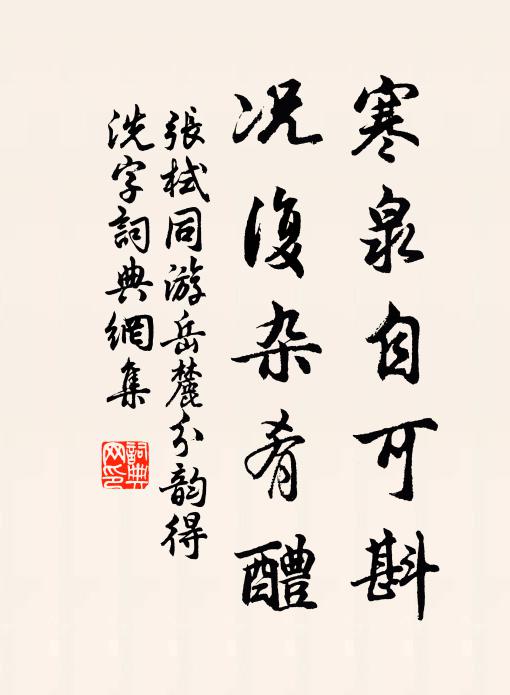 寒泉自可斟
况復杂肴醴
張栻同游岳麓分韵得
洗字詞典網集
詞典
网印